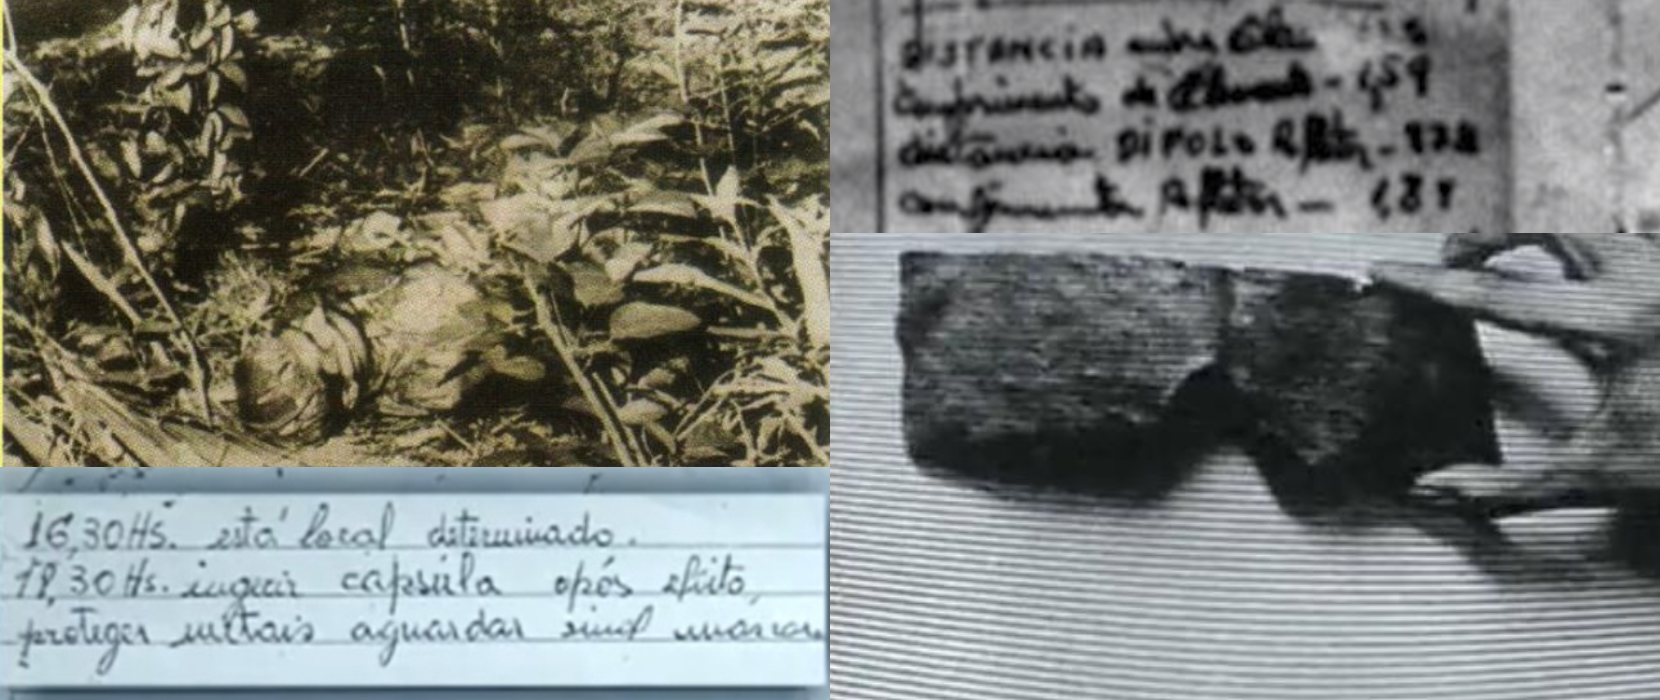 DISTANCIA entre
Comprimento do Elemento - 1,59
distância DÍPOLO Refletor - 872
comprimento Refletor - 1,87
16,30 Hs. está local determinado.
18,30 Hs. ingerir capsúla após efeito,
proteger metais aguardar sinal mascara